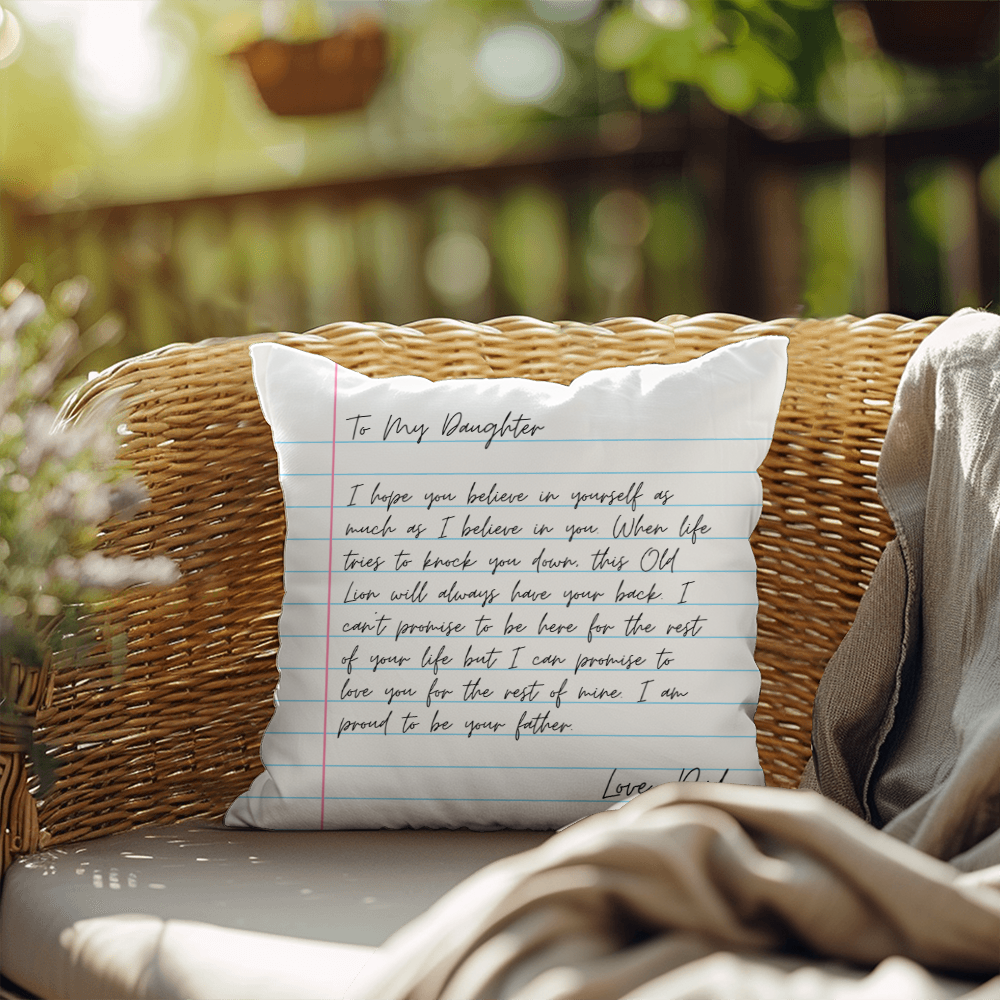 To My Daughter
I hope you believe in yourself as
much as I believe in you. When life
tries to knock you down, this Old
Lion will always have your back. I
can't promise to be here for the rest
of your life but I can promise to
love you for the rest of mine. I am
proud to be your father.
Love